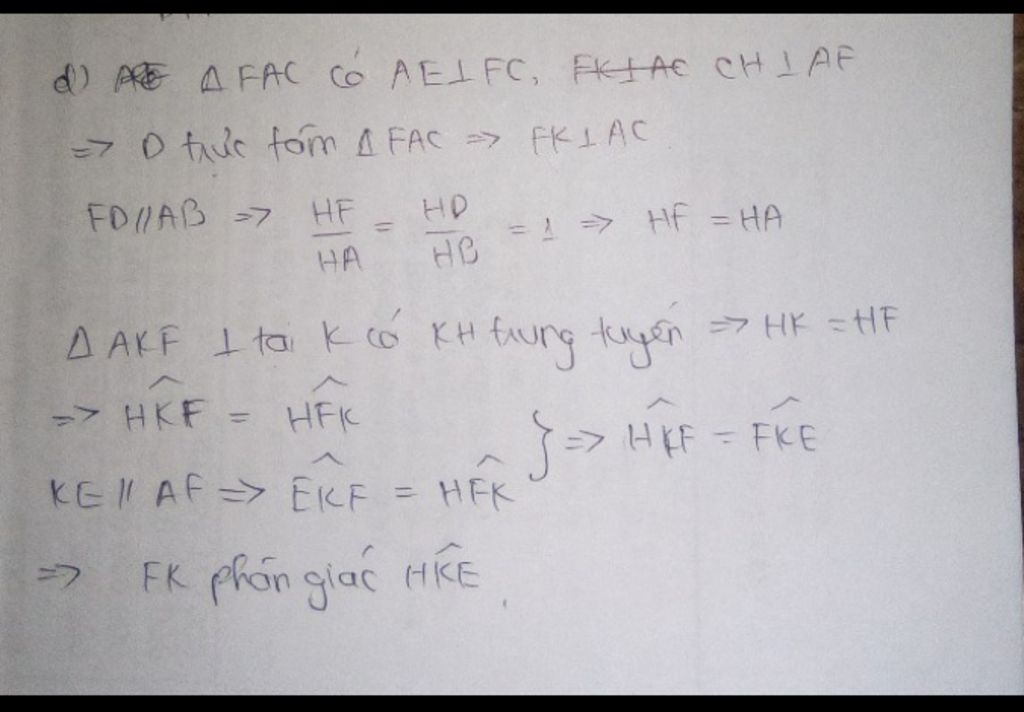 d) Δ FAC có AE⊥FC, FK⊥AC CH⊥AF
=> D trực tâm Δ FAC => FK⊥AC
FD//AB => HF/HA = HD/HB = 1 => HF = HA
Δ AKF ⊥ tại K có KH trung tuyến => HK = HF
=> HKF^ = HFK^
KE // AF => EKF^ = HFK^ } => HKF^ = FKE^
=> FK phân giác HKE^.